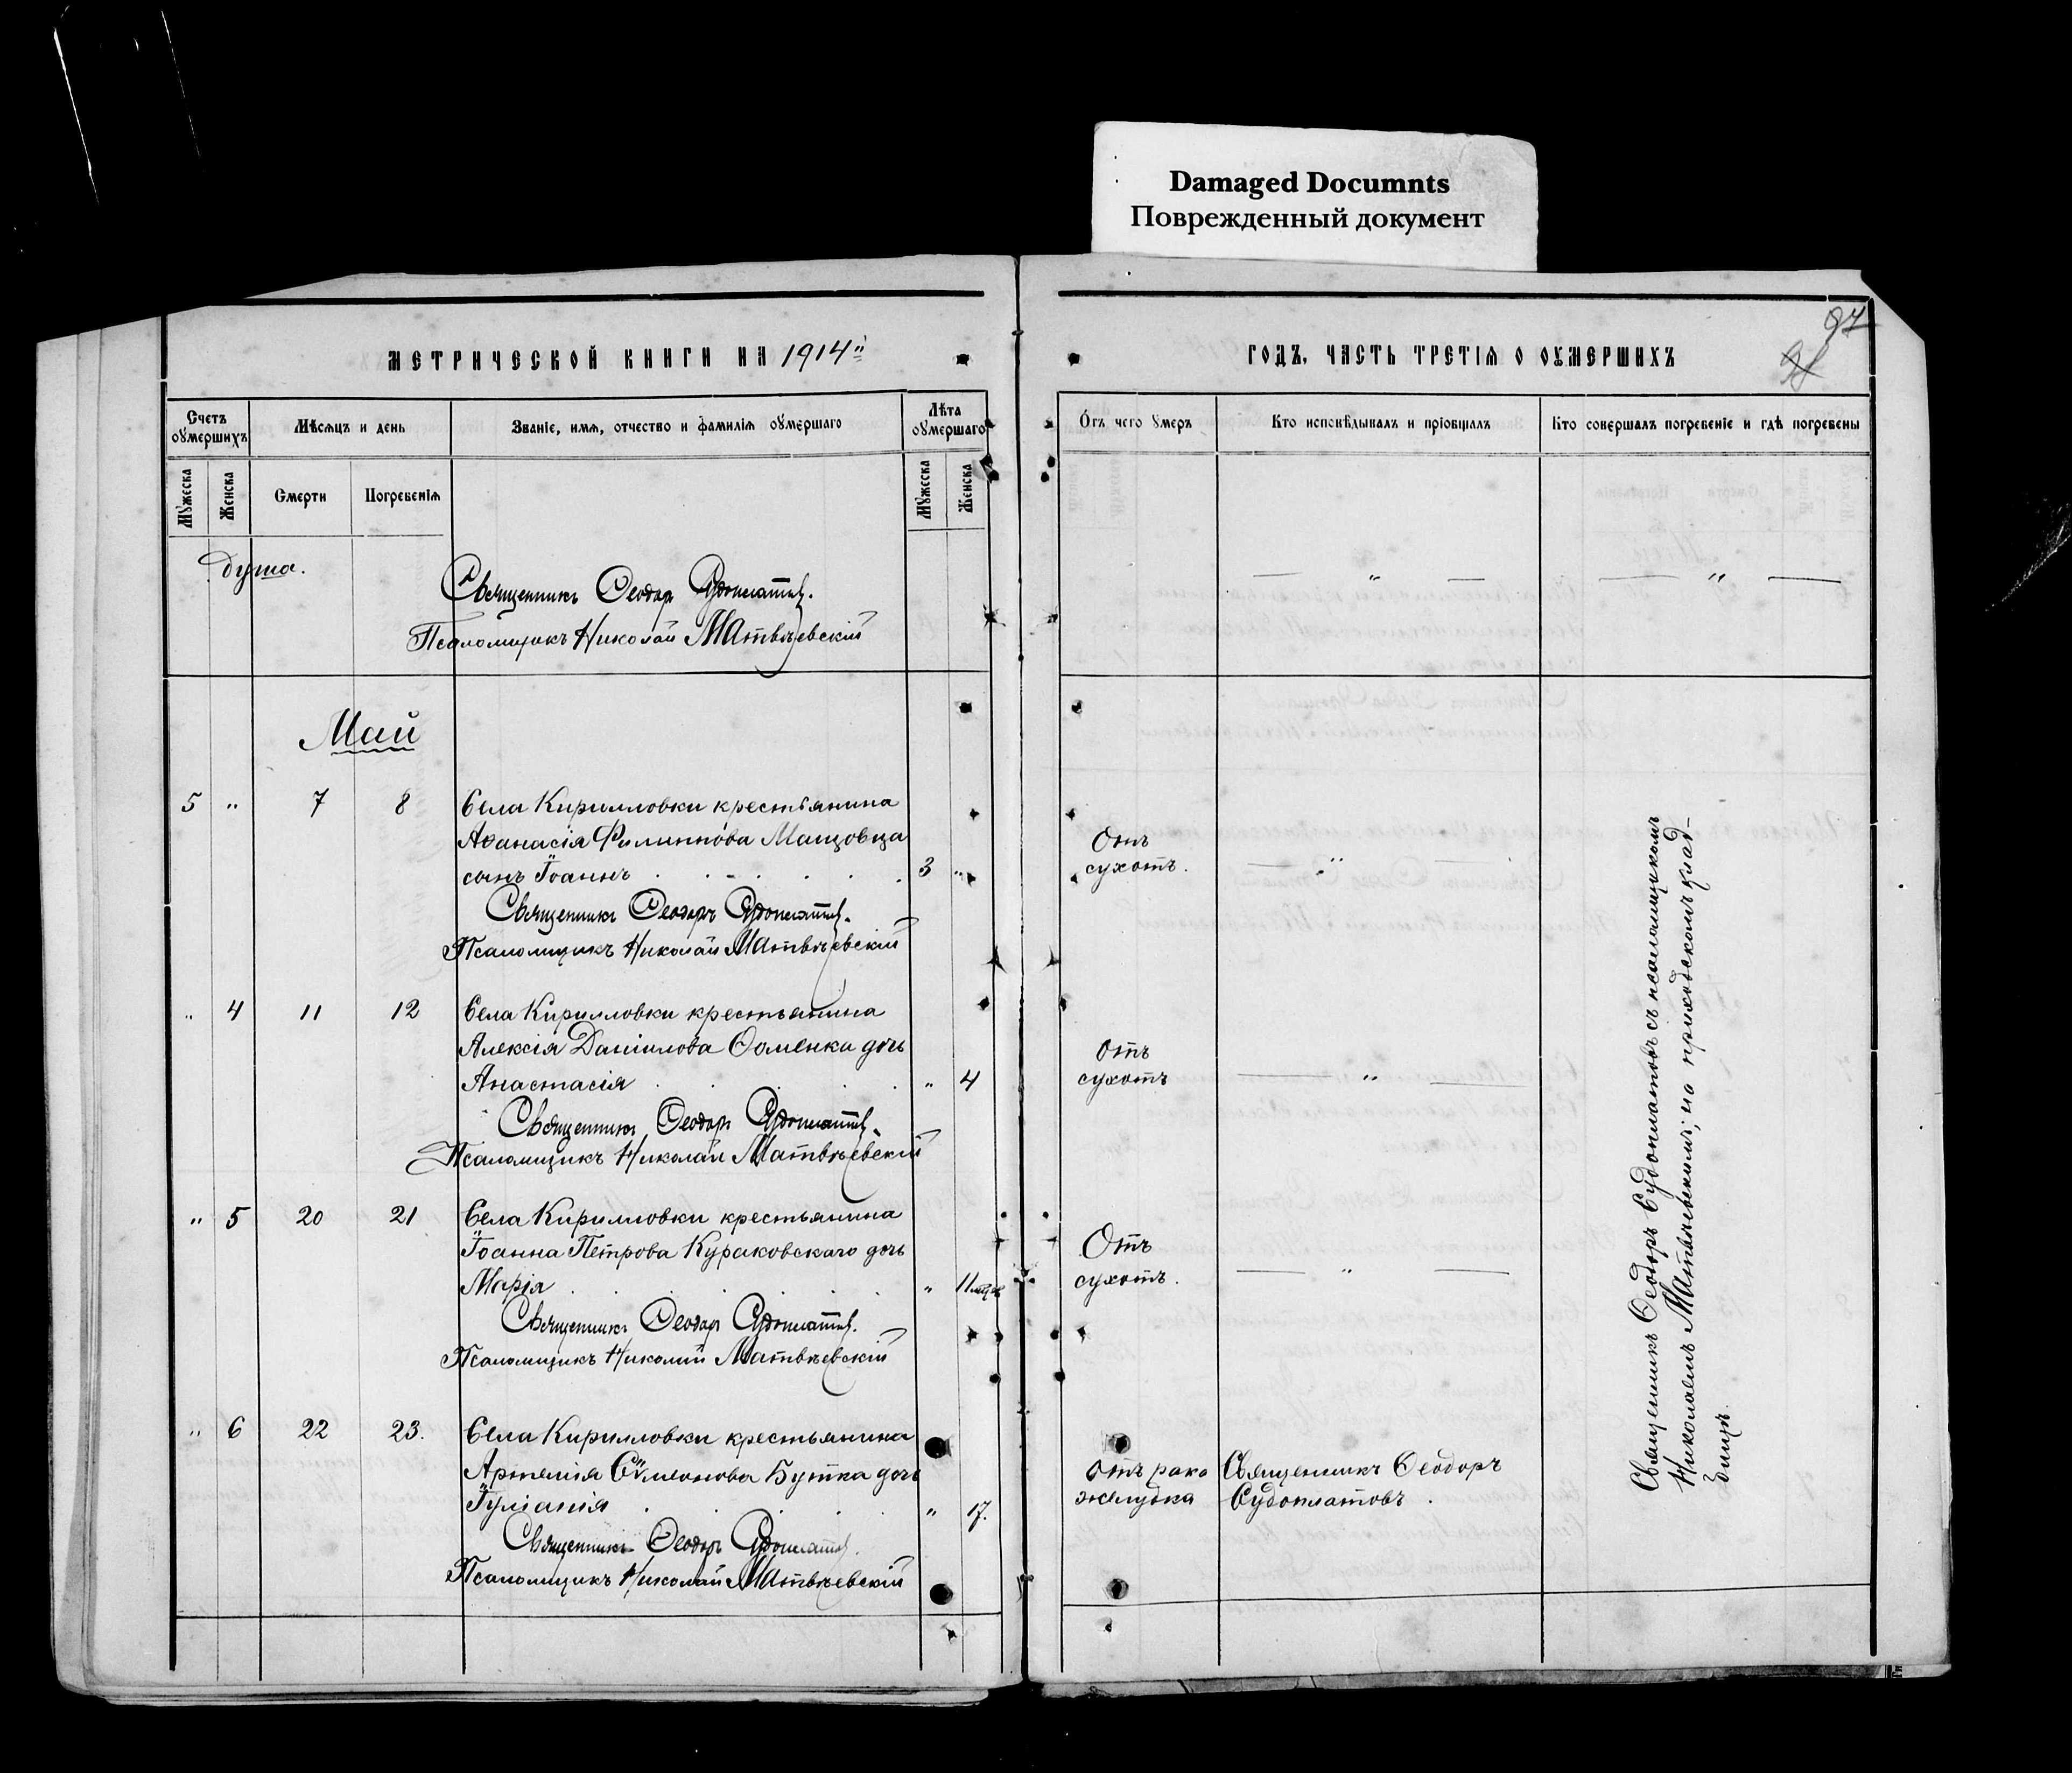 Damaged Documnts
Поврежденный документ
МЕТРИЧЕСКОЙ КНИГИ НА 1914
ГОДЪ, ЧАСТЬ ТРЕТІѦ О ОУМЕРШИХЪ
97
Счетъ оумершихъ
Мѣсѧцъ и день
Званіе, имѧ, отчество и фамиліѧ оумершаго
Лѣта оумершаго
Отъ чего умеръ
Кто исповѣдывалъ и пріобщалъ
Кто совершалъ погребеніе и гдѣ погребены
Мужеска
Женска
Смерти
Погребеніѧ
Мужеска
Женска
душа.
Священникъ Ѳеодоръ Судоплатовъ.
Псаломщикъ Николай Матвѣевскій
— " —
— " —
Май
5 " 7 8 Села Кирилловки крестьянина
Аѳанасія Филиппова Мащовца
сынъ Іоаннъ . . . . . 3 "
Отъ
сухотъ.
— " —
Священникъ Ѳеодоръ Судоплатовъ.
Псаломщикъ Николай Матвѣевскій
" 4 11 12 Села Кирилловки крестьянина
Алексія Даніилова Ѳоменка дочь
Анастасія . . . . " 4
отъ
сухотъ
— " —
Священникъ Ѳеодоръ Судоплатовъ.
Псаломщикъ Николай Матвѣевскій
" 5 20 21 Села Кирилловки крестьянина
Іоанна Петрова Кураковскаго дочь
Марія . . . . . " 11 мѣц
Отъ
сухотъ.
— " —
Священникъ Ѳеодоръ Судоплатовъ.
Псаломщикъ Николай Матвѣевскій
" 6 22 23. Села Кирилловки крестьянина
Артемія Сѵмеонова Бутка дочь
Іуліанія . . . . " 17.
отъ рака
желудка
Священникъ Ѳеодоръ
Судоплатовъ.
Священникъ Ѳеодоръ Судоплатовъ.
Псаломщикъ Николай Матвѣевскій
Священникъ Ѳеодоръ Судоплатовъ съ псаломщикомъ
Николаемъ Матвѣевскимъ; на приходскомъ клад-
бищѣ.